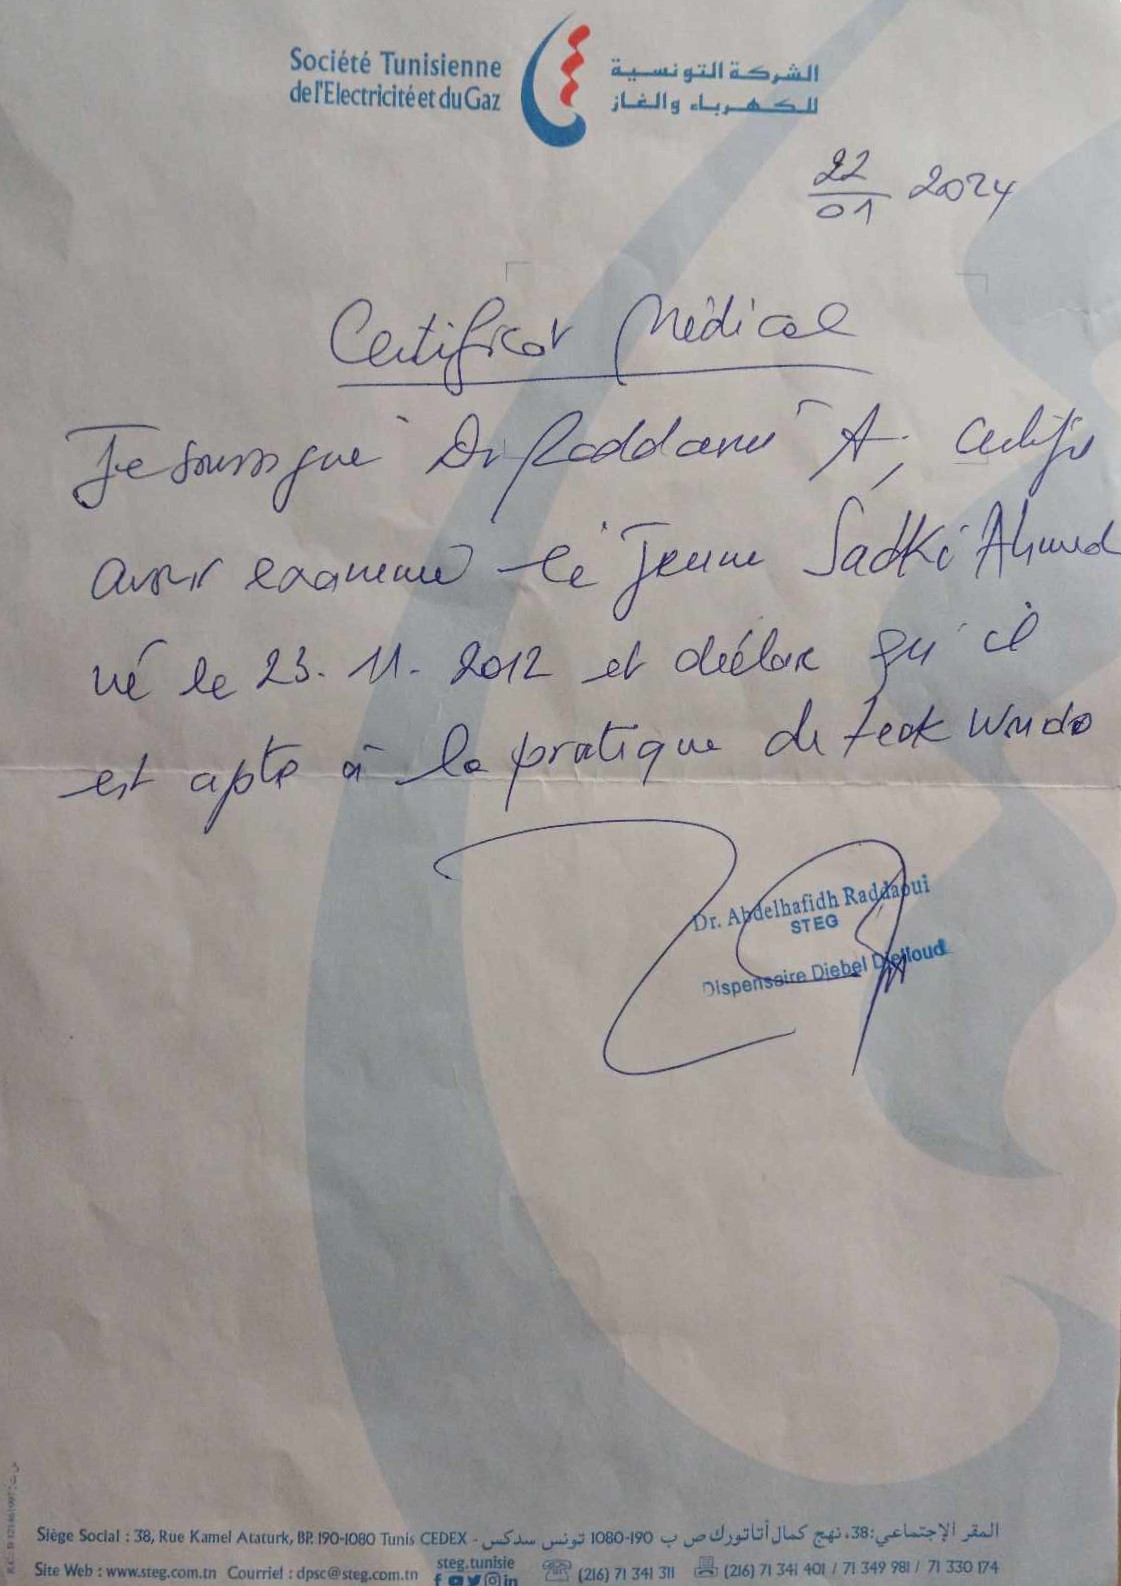 Société Tunisienne
de l'Electricité et du Gaz
الشركة التونسية
للكهرباء والغاز
22/01 2024
Certificat Médical
Je soussigné Dr Raddaoui A, certifie
avoir examiné le jeune Sadki Ahmed
né le 23.11.2012 et déclare qu'il
est apte à la pratique de teakwndo
Dr. Abdelhafidh Raddaoui
STEG
Dispensaire Djebel Djelloud
Siège Social : 38, Rue Kamel Ataturk, BP. 190-1080 Tunis CEDEX - المقر الإجتماعي: 38، نهج كمال أتاتورك ص ب 190-1080 تونس سدكس
Site Web : www.steg.com.tn Courriel : dpsc@steg.com.tn steg.tunisie (216) 71 341 311 (216) 71 341 401 / 71 349 981 / 71 330 174